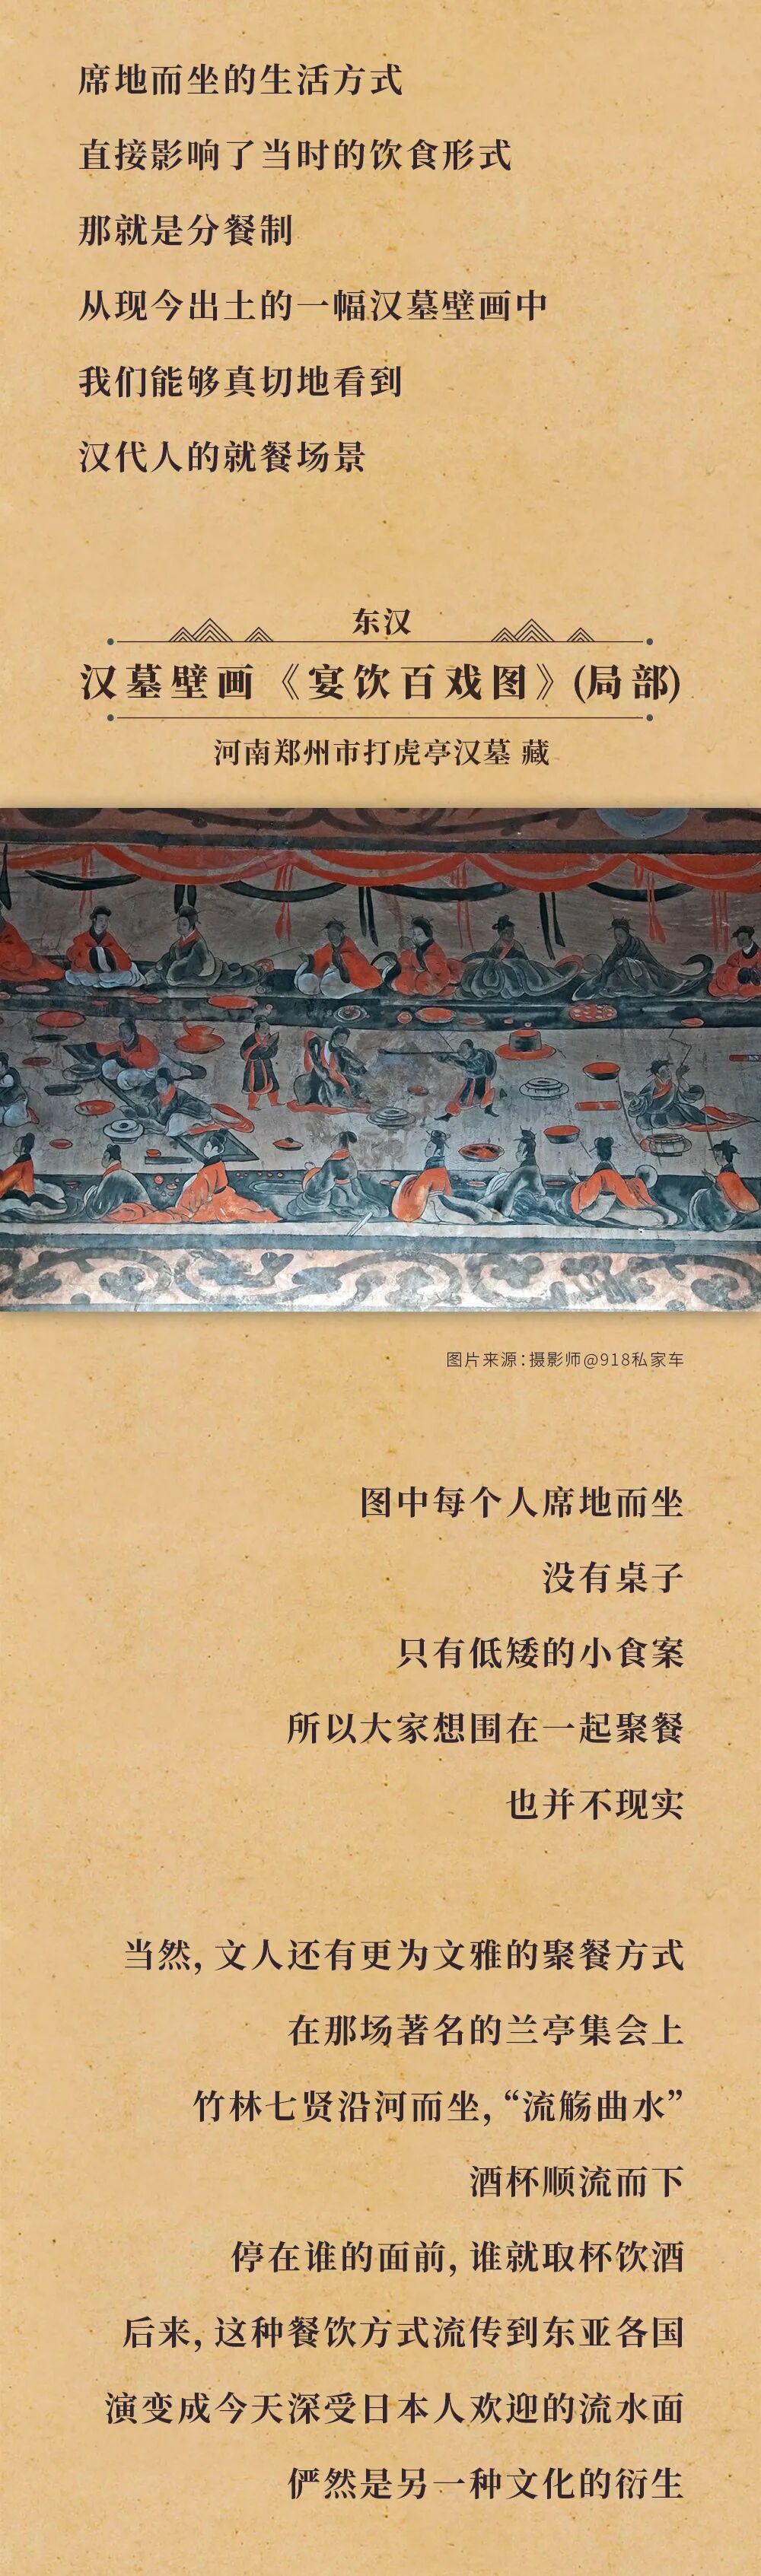 席地而坐的生活方式
直接影响了当时的饮食形式
那就是分餐制
从现今出土的一幅汉墓壁画中
我们能够真切地看到
汉代人的就餐场景
东汉
汉墓壁画《宴饮百戏图》(局部)
河南郑州市打虎亭汉墓 藏
图片来源:摄影师@918私家车
图中每个人席地而坐
没有桌子
只有低矮的小食案
所以大家想围在一起聚餐
也并不现实
当然, 文人还有更为文雅的聚餐方式
在那场著名的兰亭集会上
竹林七贤沿河而坐, “流觞曲水”
酒杯顺流而下
停在谁的面前, 谁就取杯饮酒
后来, 这种餐饮方式流传到东亚各国
演变成今天深受日本人欢迎的流水面
俨然是另一种文化的衍生